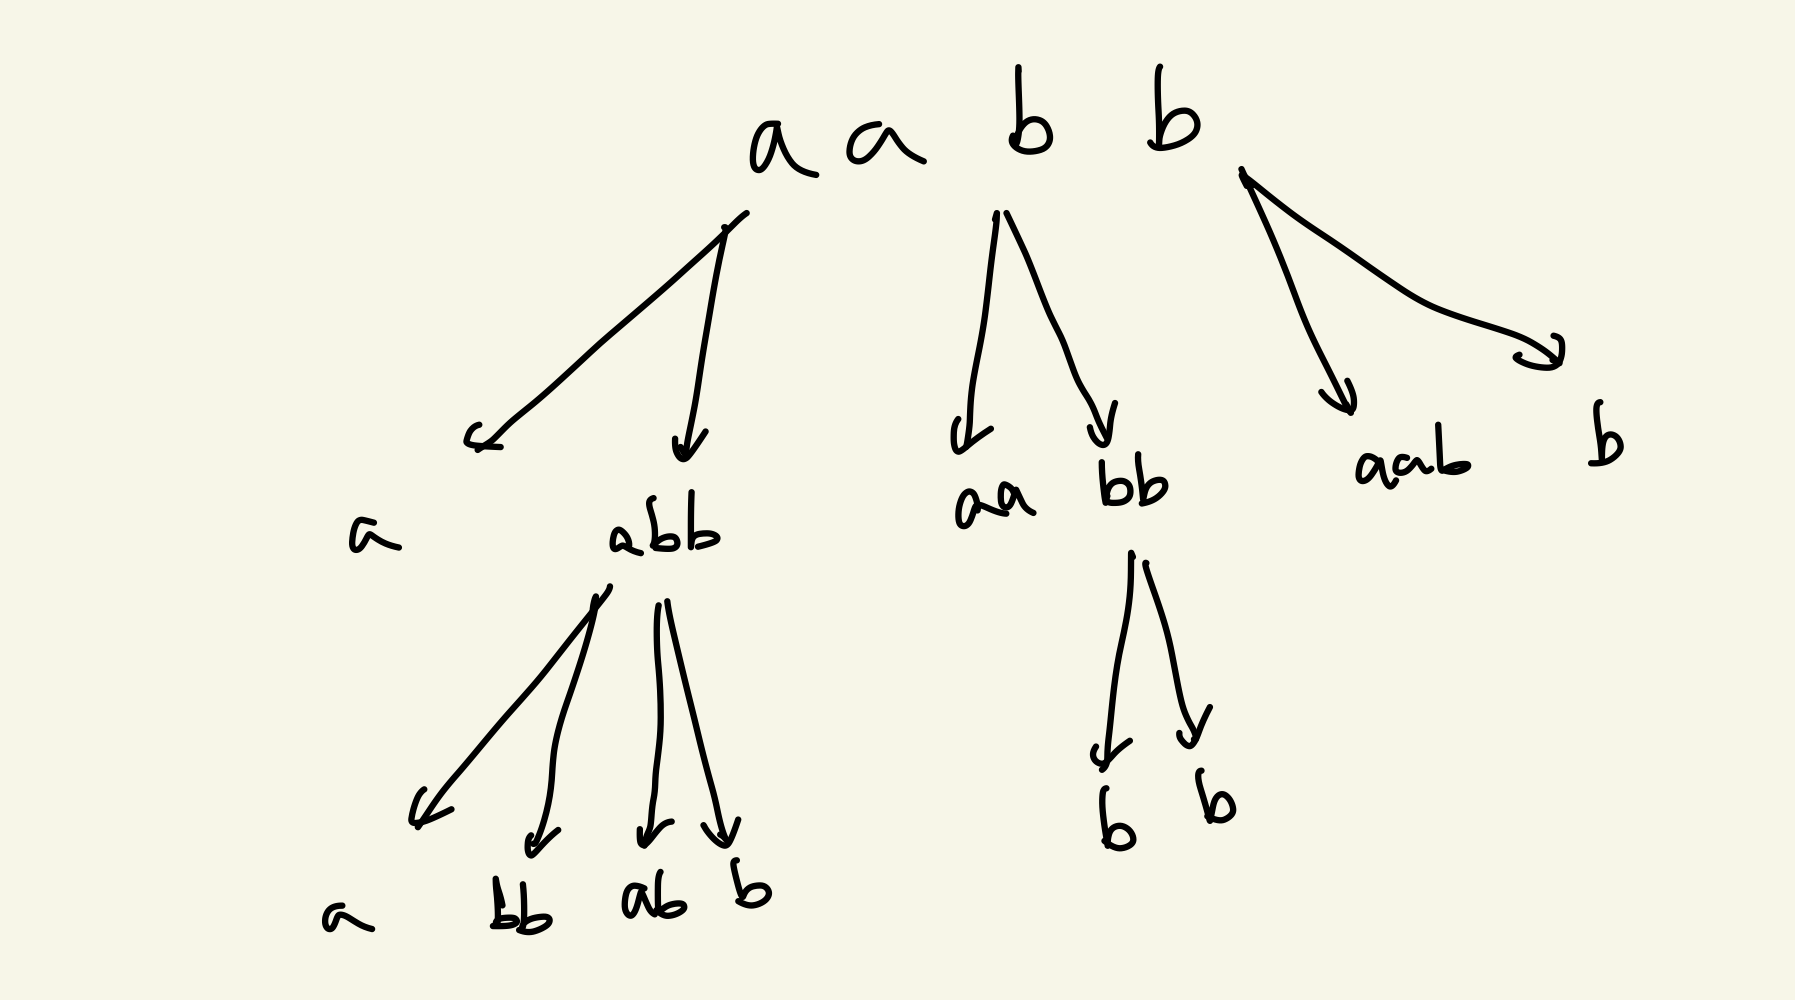 a a b b
a abb aa bb aab b
b b
a bb ab b